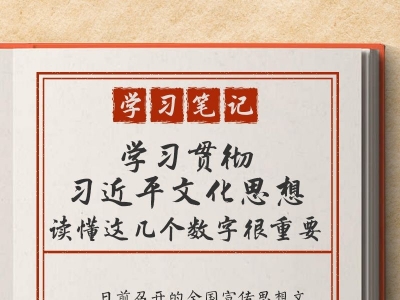 学习笔记
学习贯彻
习近平文化思想
读懂这几个数字很重要
日前召开的全国宣传思想文